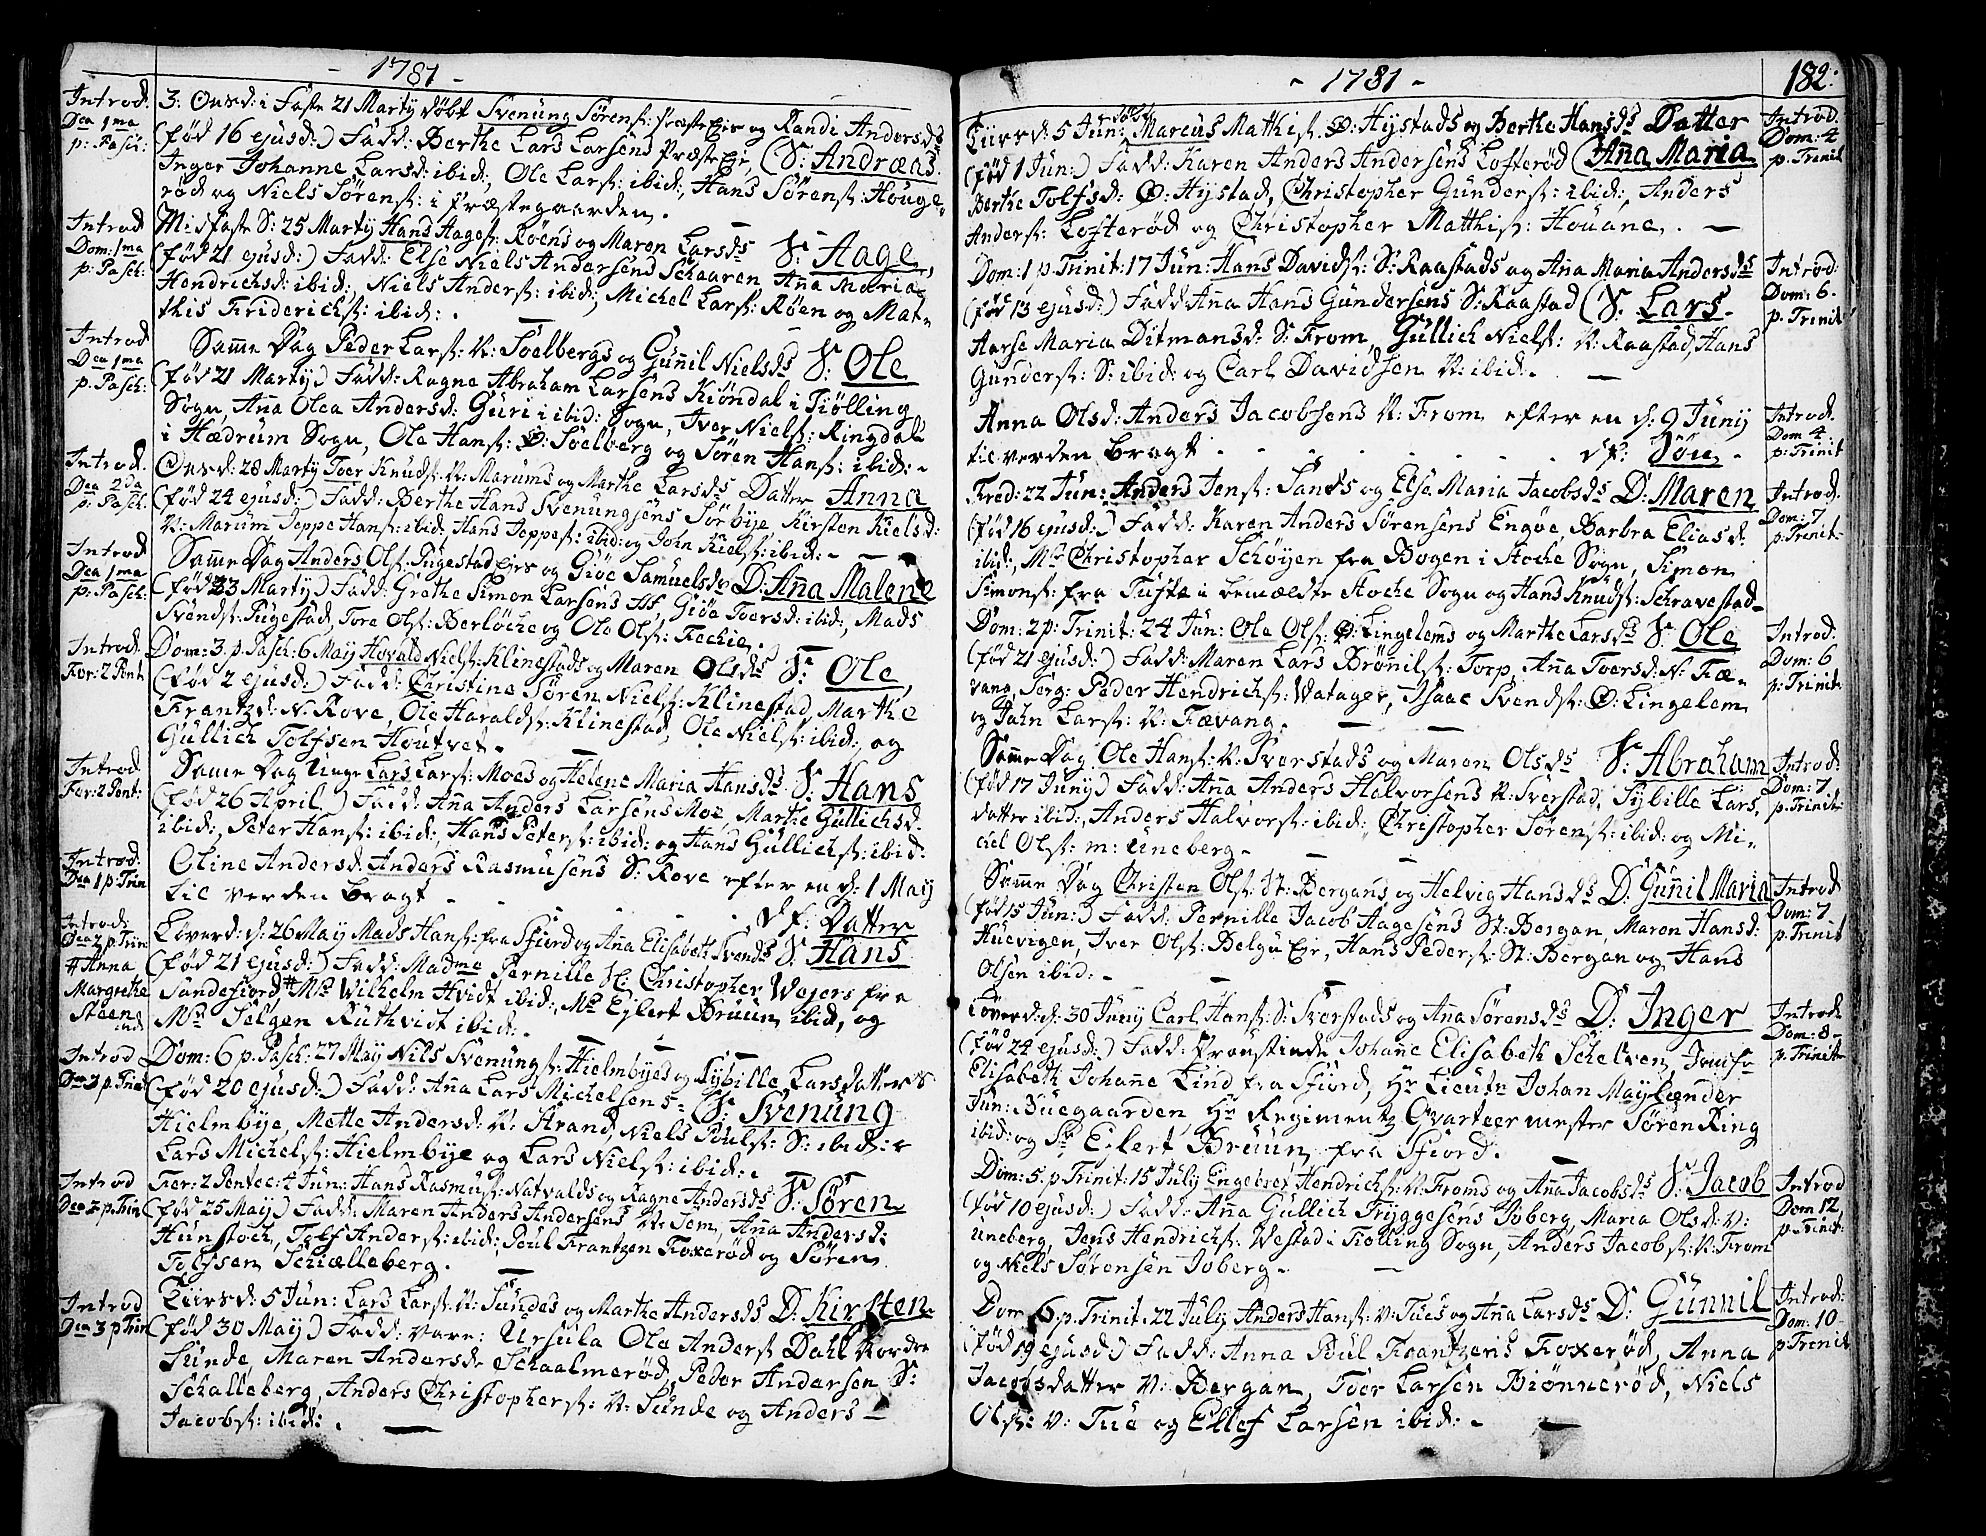 - 1781 -
Introd.
Dca 1ma
p: Pasch:
3. Onsd: i Faste 21 Martij døbt Svenung Sørens: Præste Eie og Randi Andersds
(fød 16 ejusd:) Fadd: Berthe Lars Larsens Præste Eje, (S: Andræas.
Inger Johanne Larsd: ibid:, Ole Lars: ibid:, Hans Sørens: Houge-
rød og Niels Sørens: i Præstegaarden.
Introd
Dom: 1ma
p: Pasch:
Midfaste S: 25 Martij Hans Aages: Røens og Maren Larsds S: Aage,
(fød 21 ejusd:) Fadd: Else Niels Andersens Schaaren Aña Maria
Hendrichsd: ibid:, Niels Anders: ibid:, Michel Lars: Røen og Mat-
this Friderichs: ibid:.
Introd
Dca 1ma
p: Pasch:
Samme Dag Peder Lars: N: Soelbergs og Guñil Nielsds S: Ole
(fød 21 Martij) Fadd: Ragne Abraham Larsens Kiøndal i Tiølling
Sogn, Aña Olea Andersd: Guri i ibid: Sogn, Iver Niels: Ringdal
i Hædrum Sogn, Ole Hans: Ø: Soelberg og Søren Hans: ibid:-
Introd.
Dca 2da
p: Pasch:
Onsd: 28 Martij Toer Knuds: N: Marums og Marthe Larsds Datter Anna
(fød 24 ejusd:) Fadd: Berthe Hans Svenungsens Sørbye, Kirsten Kielsd:
N: Marum Jeppe Hans: ibid: Hans Jeppes: ibid: og John Kiels: ibid:-
Introd
Dca 1ma
p: Pasch:
Samme Dag Anders Ols: Fugestad Ejes og Giøe Samuelsds D: Aña Malene
(fød 23 Martij) Fadd: Grethe Simon Larsens Hf, Giøa Toersd: ibid:, Mads
Svends: Fugestad, Tore Ols: Berløche og Ole Ols: Fechie.
Introd.
Fer: 2 Pent
Dom: 3. p. Pasch: 6 May Hovald Niels: Klinestads og Maren Olsds S: Ole,
(fød 2 ejusd:) Fadd: Christine Søren Niels: Klinestad, Marthe
Frantzd: N: Rove, Ole Haralds: Klinestad, Ole Niels: ibid:, og
Gullich Tolfsen Houtvet.
Introd
Fer: 2 Pent:
Samme Dag Unge Lars Lars: Moes og Helene Maria Hansds S: Hans
(fød 26 April) Fadd: Aña Anders Larsens Moe, Marthe Gullichsd:
ibid:, Peter Hans: ibid:, Hans Peters: ibid: og Hans Gullichs: ibid:
Introd:
Dca 1 p: Trin
Oline Andersd: Anders Rasmusens S: Rove efter en d: 1 May
til verden bragt - - - - - df: Datter
Introd:
Dca 2 p: Trin
# Anna
Margrethe
Steen
ind
Løverd: d: 26 May Mads Hans: fra Sfiord og Aña Elisabeth Svendsds S: Hans
(fød 21 ejusd:) Fadd: Madme Pernille H: Christopher Wejers fra
Sandefiord, # Mr Wilhelm Hvidt ibid:, Mr Ejlert Bruun ibid, og
Mr Selgen Ruthvidt ibid:.
Introd
Dca 3 p: Trin
Dom: 6 p. Pasch: 27 May Nils Svenungs: Hielmbyes og Sybille Larsdatters
(fød 20 ejusd:) Fadd: Aña Lars Michelsens- (S: Svenung
Hielmbye, Mette Andersd: N: Strand, Niels Pouls: S: ibid:,
Lars Michels: Hielmbye og Lars Niels: ibid:.
Introd
Dca 2 p: Trin
Fer: 2 Pentec: 4 Jun: Hans Rasmus: Natvalds og Ragne Andersds S: Søren
(fød 25 May) Fadd: Maren Anders Andersens N: Fem, Aña Andersd:
Hunstoch, Tolf Anders: ibid:, Poul Frantzen Foxerød og Søren
Tolfsen Schiælleberg.
Introd
Dca 3 p Trin
Tiirsd: 5 Jun: Lars Lars: N: Sundes og Marthe Andersds D: Kirsten
(fød 30 May) Fadd: Vare: Ursula Ole Anders: Dahl Nordre
Sunde, Maren Andersd: Schaalmerød, Peder Andersen S:
Schalleberg, Anders Christophers: N: Sunde og Anders
Jacobs: ibid:.
- 1781 -
182:
Tiirsd: 5 Jun: døbt Marcus Mathis: Ø: Hystads og Berthe Hansds Datter
(fød 1 Jun:) Fadd: Karen Anders Andersens Lofterød (Aña Maria
Berthe Tolfsd: Ø: Hystad, Christopher Gunders: ibid:, Anders
Anders: Lofterød og Christopher Matthis: Houane.
Introd.
Dom: 4
p: Trinit
Dom: 1 p: Trinit: 17 Jun: Hans Davids: S: Raastads og Aña Maria Andersds
(fød 13 ejusd:) Fadd Aña Hans Gundersens S: Raastad (S: Lars.
Aarse Maria Ditmansd: S: From, Gullich Niels: N: Raastad, Hans
Gunders: S: ibid: og Carl Davidsen N: ibid:.
Introd:
Dom: 6.
p: Trinit
Anna Olsd: Anders Jacobsens N: From efter en d: 9 Junij
til verden bragt - - - - - df: Søn.
Introd.
Dom 4
p: Trinit
Fred: 22 Jun: Anders Jens: Sands og Else Maria Jacobsds D: Maren
(fød 16 ejusd:) Fadd: Karen Anders Sørensens Engøe, Barbra Eliasd:
ibid:, Mr Christopher Schøyen fra Bogen i Hoche Sogn, Simon
Simons: fra Tuste i bemælte Hoche Sogn og Hans Knuds: Schravestad.
Introd:
Dom: 7
p: Trinit:
Dom: 2 p: Trinit: 24 Jun: Ole Ols: Ø: Lingelems og Marthe Larsds S: Ole
(fød 21 ejusd:) Fadd: Maren Lars Brønils: Torp, Aña Toersd: N: Fæ-
vang, Serg: Peder Hendrichs: Vatager, Isaac Svends: Ø: Lingelem
og John Lars: N: Fævang.
Introd.
Dom: 6
p: Trinit:
Samme Dag Ole Hans: N: Sverstads og Maren Olsds S: Abraham
(fød 17 Junij) Fadd: Aña Anders Halvorsens N: Sverstad, Sybille Lars,
datter ibid:, Anders Halvors: ibid:, Christopher Sørens: ibid: og Mi-
chel Ols: m: Uneberg.
Introd:
Dom: 7
p: Trinit:
Samme Dag Christen Ols: St: Bergans og Helvig Hansds D: Guñil Maria
(fød 15 Jun:) Fadd: Pernille Jacob Aagesens St: Bergan, Maren Hansd:
Huevigen, Iver Ols: Belgu Eje, Hans Peders: St: Bergan og Hans
Olsen ibid:.
Introd
Dom: 7
p: Trinit
Løverd: d: 30 Junij Carl Hans: S: Sverstads og Ana Sørensds D: Inger
(fød 24 ejusd:) Fadd: Proustinde Johañe Elisabeth Schelven, Jomfr
Elisabeth Johañe Lind fra Sfiord, Hr Lieutn Johan Maylænder
Jun: Buegaarden, Hr Regimentz Qvarteermester Søren Ring
ibid: og Sr Ejlert Bruun fra Sfiord.
Introd.
Dom: 8-
p: Trinit:
Dom: 5. p: Trinit: 15 Julij Engebret Hendrichs: N: Froms og Aña Jacobsds S: Jacob
(fød 10 ejusd:) Fadd: Aña Gullich Tryggesens Joberg, Maria Olsd: N:
Uneberg, Jens Hendrichs: Vestad i Tiølling Sogn, Anders Jacobs: N: From
og Niels Sørensen Joberg.
Introd
Dom 12
p: Trinit:
Dom 6 p. Trinit: 22 Julij Anders Hans: N: Tues og Aña Larsds D: Gunnil
(fød 19 ejusd:) Fadd: Anna Poul Frantzens Foxerød, Anna
Jacobsdatter N: Bergan, Toer Larsen Biønnerød, Niels
Ols: N: Tue og Ellef Larsen ibid:.
Introd:
Dom: 10
p Trinit: